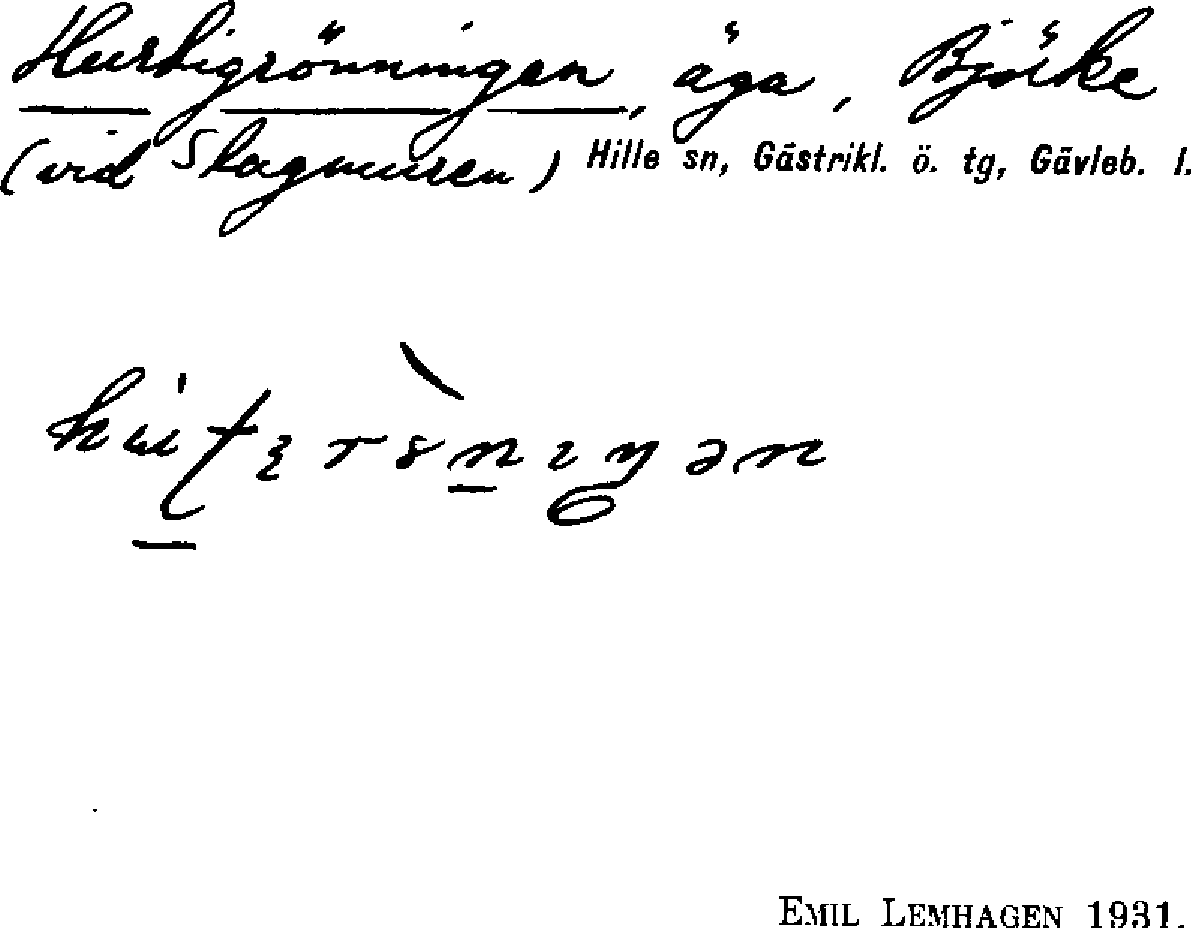 Hurtigrönningen, äga, Björke
(vid Skogmuren) Hille sn, Gästrikl. ö. tg, Gävleb. l.
EMIL LEMHAGEN 1931.